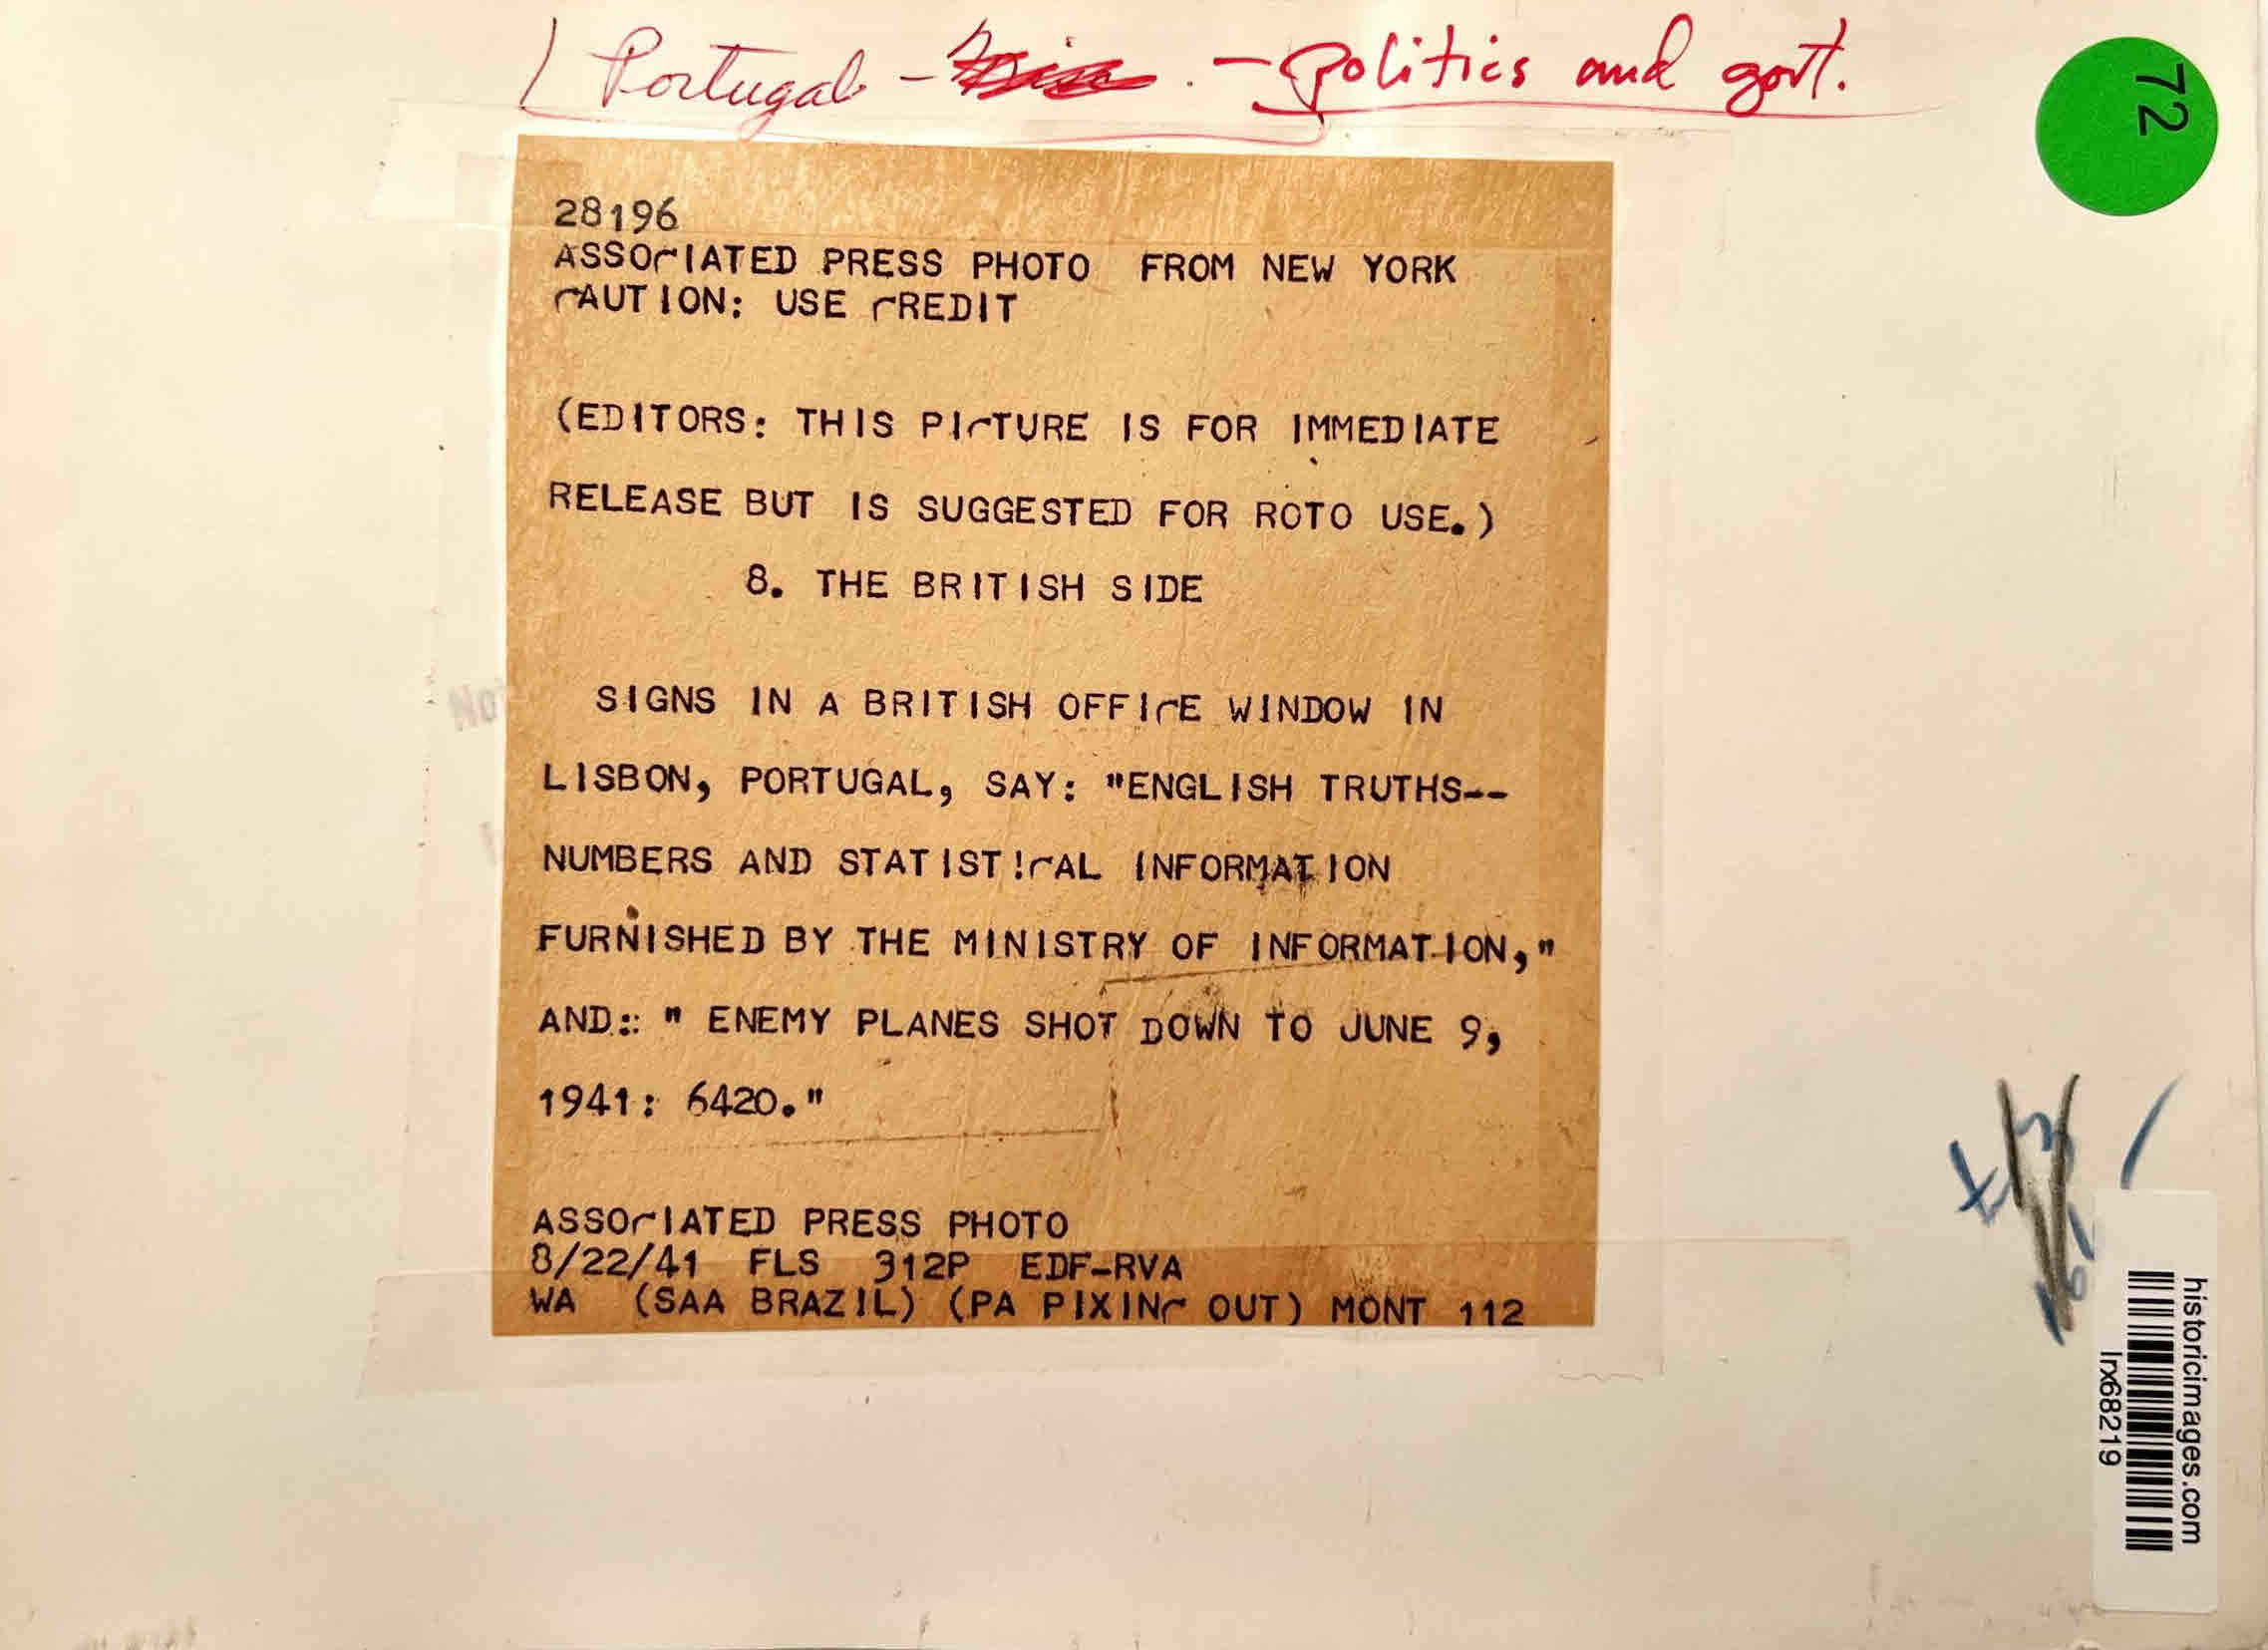 Portugal - - politics and govt.
72
28196
ASSOCIATED PRESS PHOTO FROM NEW YORK
CAUTION: USE CREDIT
(EDITORS: THIS PICTURE IS FOR IMMEDIATE
RELEASE BUT IS SUGGESTED FOR ROTO USE.)
8. THE BRITISH SIDE
SIGNS IN A BRITISH OFFICE WINDOW IN
LISBON, PORTUGAL, SAY: "ENGLISH TRUTHS--
NUMBERS AND STATIST!CAL INFORMATION
FURNISHED BY THE MINISTRY OF INFORMATION,"
AND:: " ENEMY PLANES SHOT DOWN TO JUNE 9,
1941: 6420."
ASSOCIATED PRESS PHOTO
8/22/41 FLS 312P EDF-RVA
WA (SAA BRAZIL) (PA PIXING OUT) MONT 112
historicimages.com
lrx68219